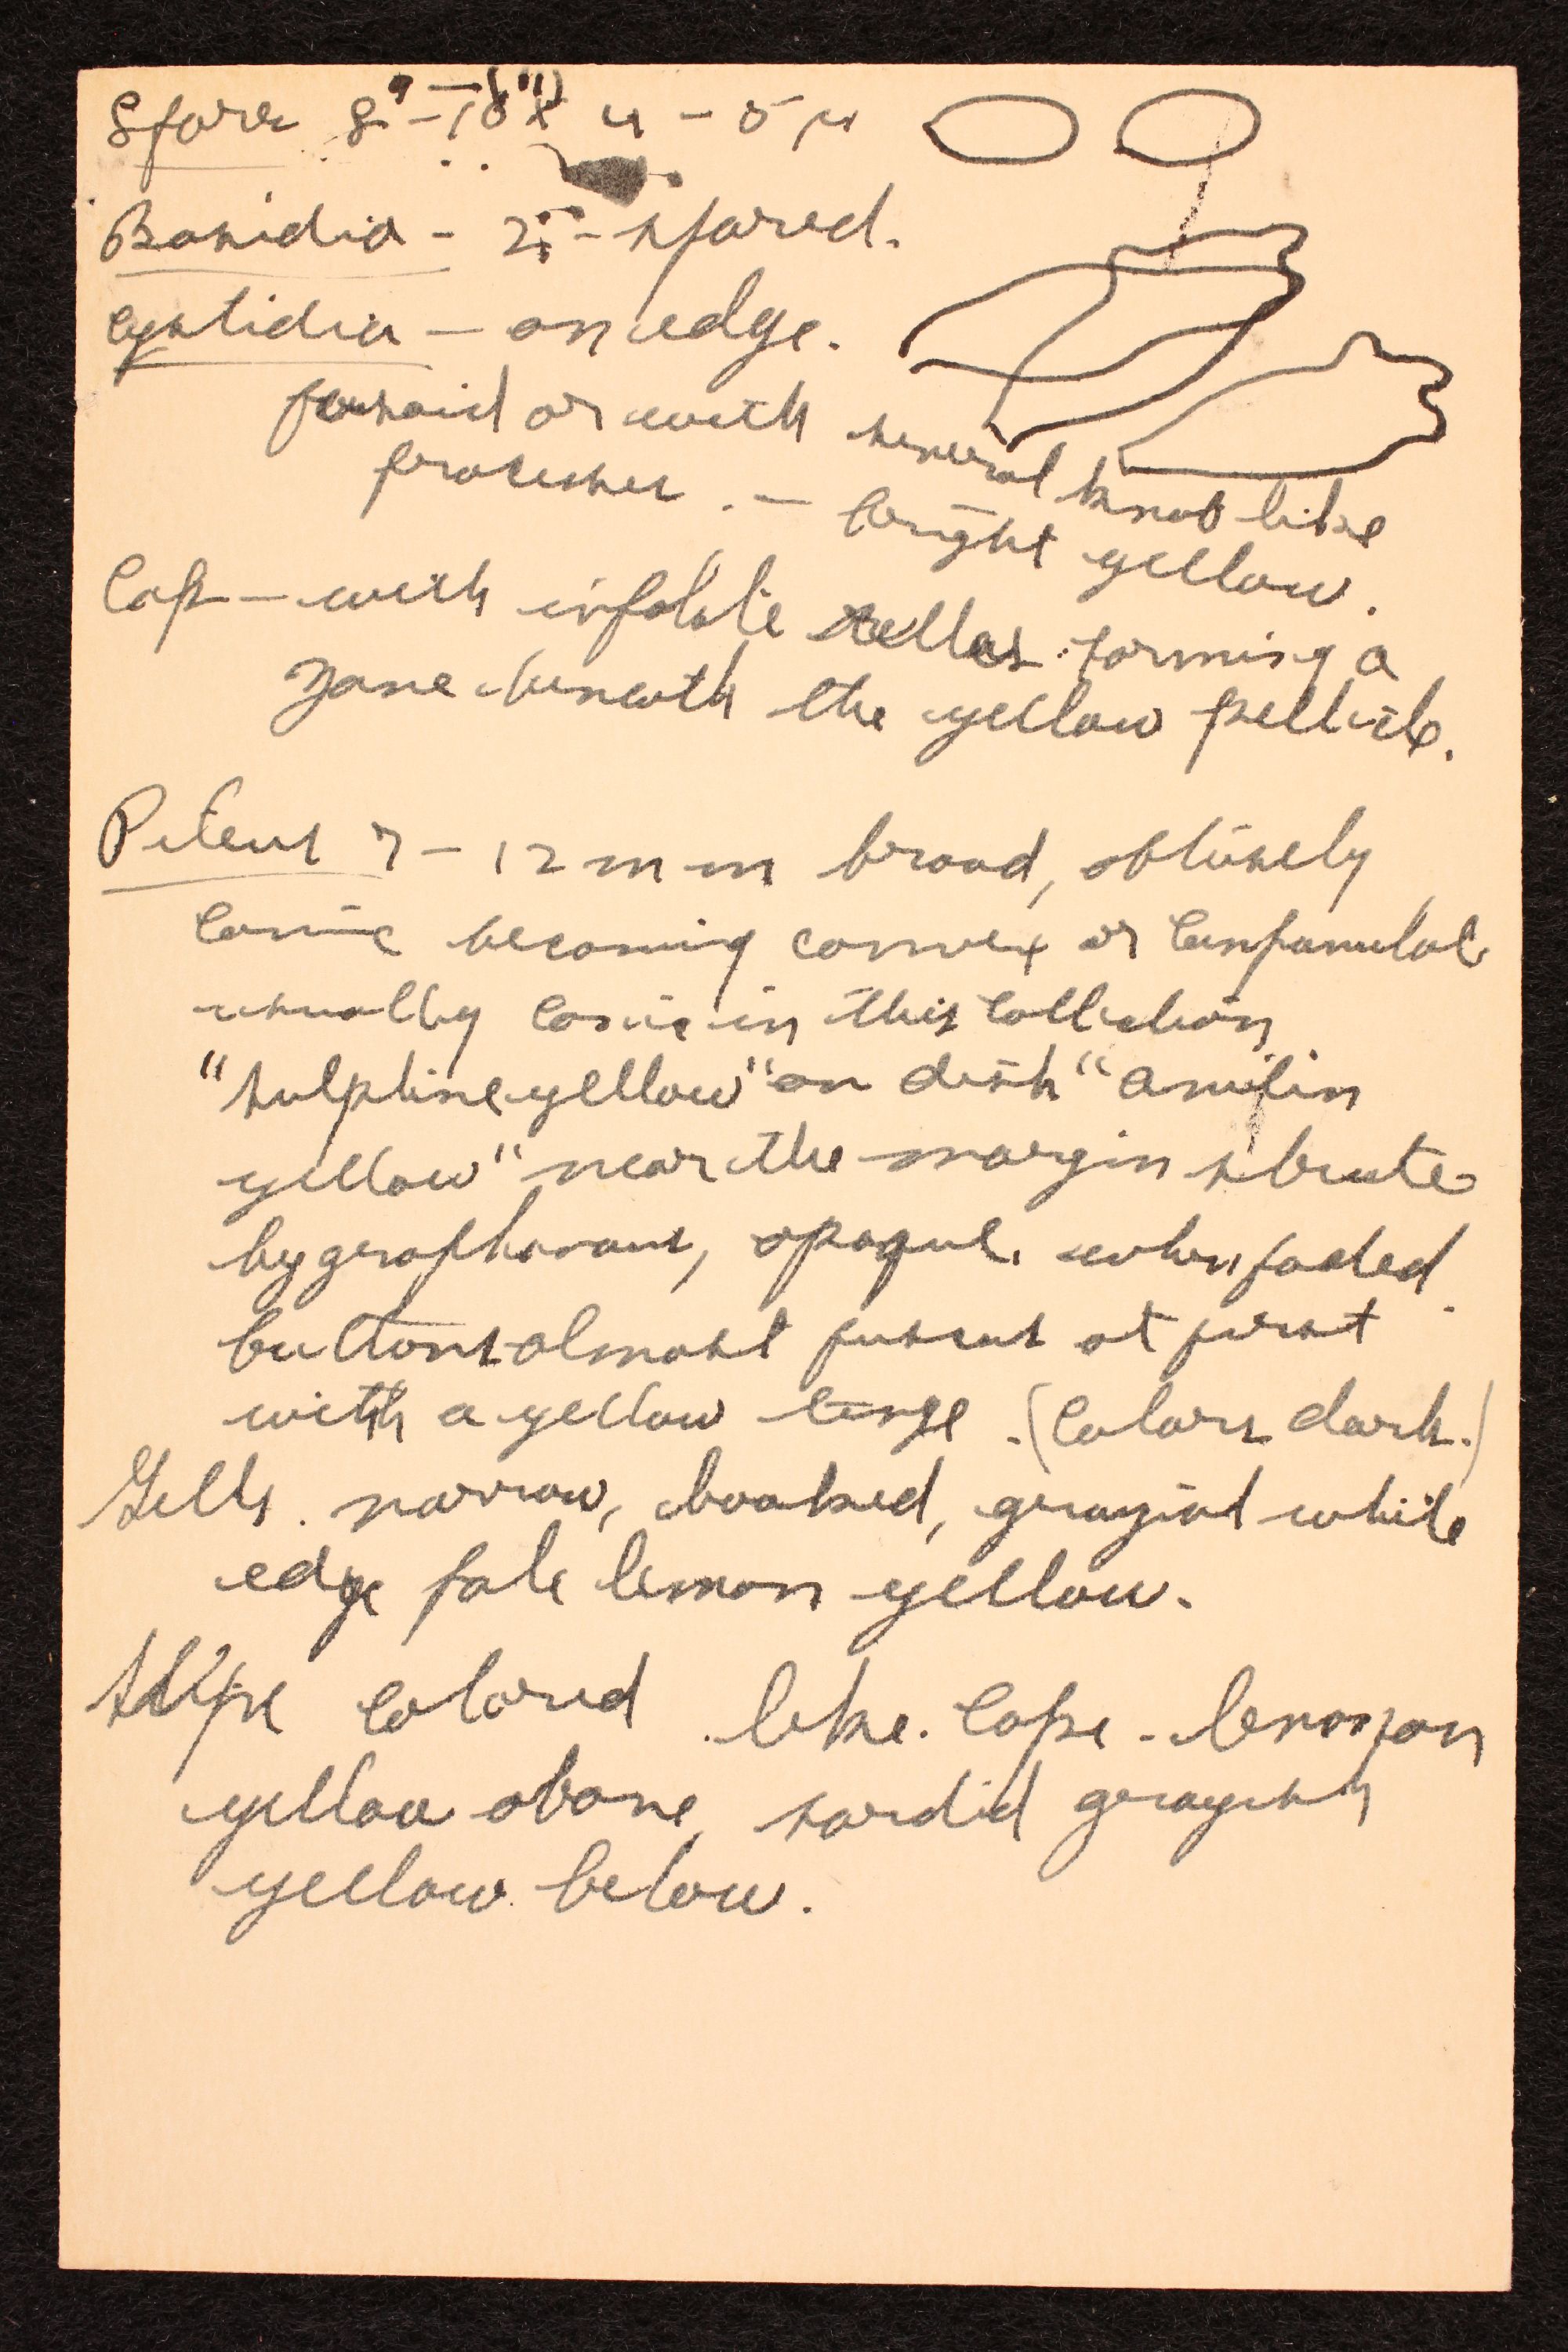 Spores 8-10 x 4-5 µ
9-(11)
Basidia - 2 - spored.
Cystidia - on edge.
fusoid or with several knob like
processes. - bright yellow.
Cap - with inflated cells forming a
zone beneath the yellow pellicle.
Pileus 7-12 mm broad, obtusely
conic becoming convex or campanulate
usually conic in this collection
"sulphine yellow" on disk "anilin
yellow" near the margin striate
hygrophanous, opaque when faded.
buttons almost fuscus at first
with a yellow tinge. (Colors dark.)
Gills. narrow, hooked, grayish white
edge pale lemon yellow.
Stipe colored like cape - lemon
yellow above, sordid grayish
yellow below.